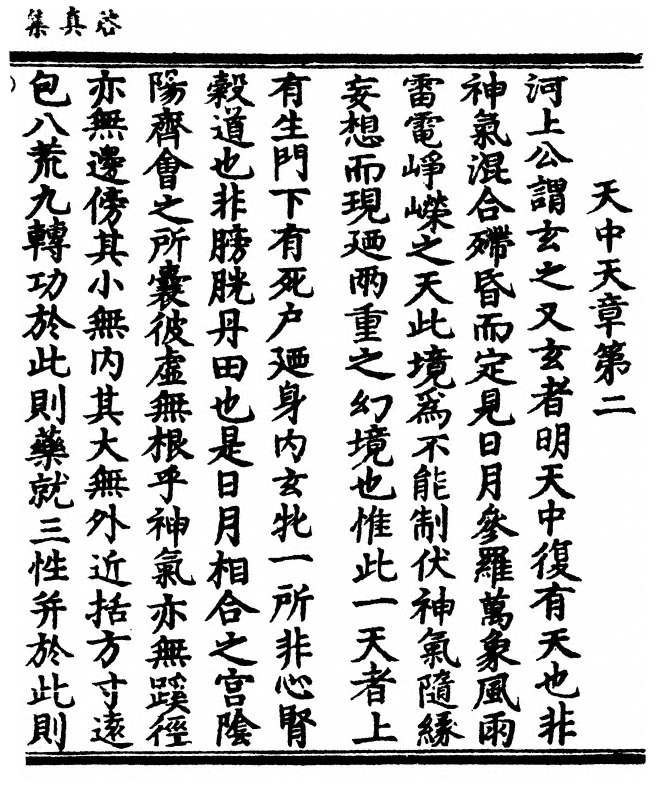 啓真集
天中天章第二
河上公謂玄之又玄者明天中復有天也非
神氣混合殢昏而定見日月參羅萬象風雨
雷電崢嶸之天此境爲不能制伏神氣隨緣
妄想而現廼兩重之幻境也惟此一天者上
有生門下有死户廼身内玄牝一所非心腎
穀道也非膀胱丹田也是日月相合之宫陰
陽齊會之所囊彼虛無根乎神氣亦無蹊徑
亦無邊傍其小無内其大無外近括方寸遠
包八荒九轉功於此則藥就三性并於此則